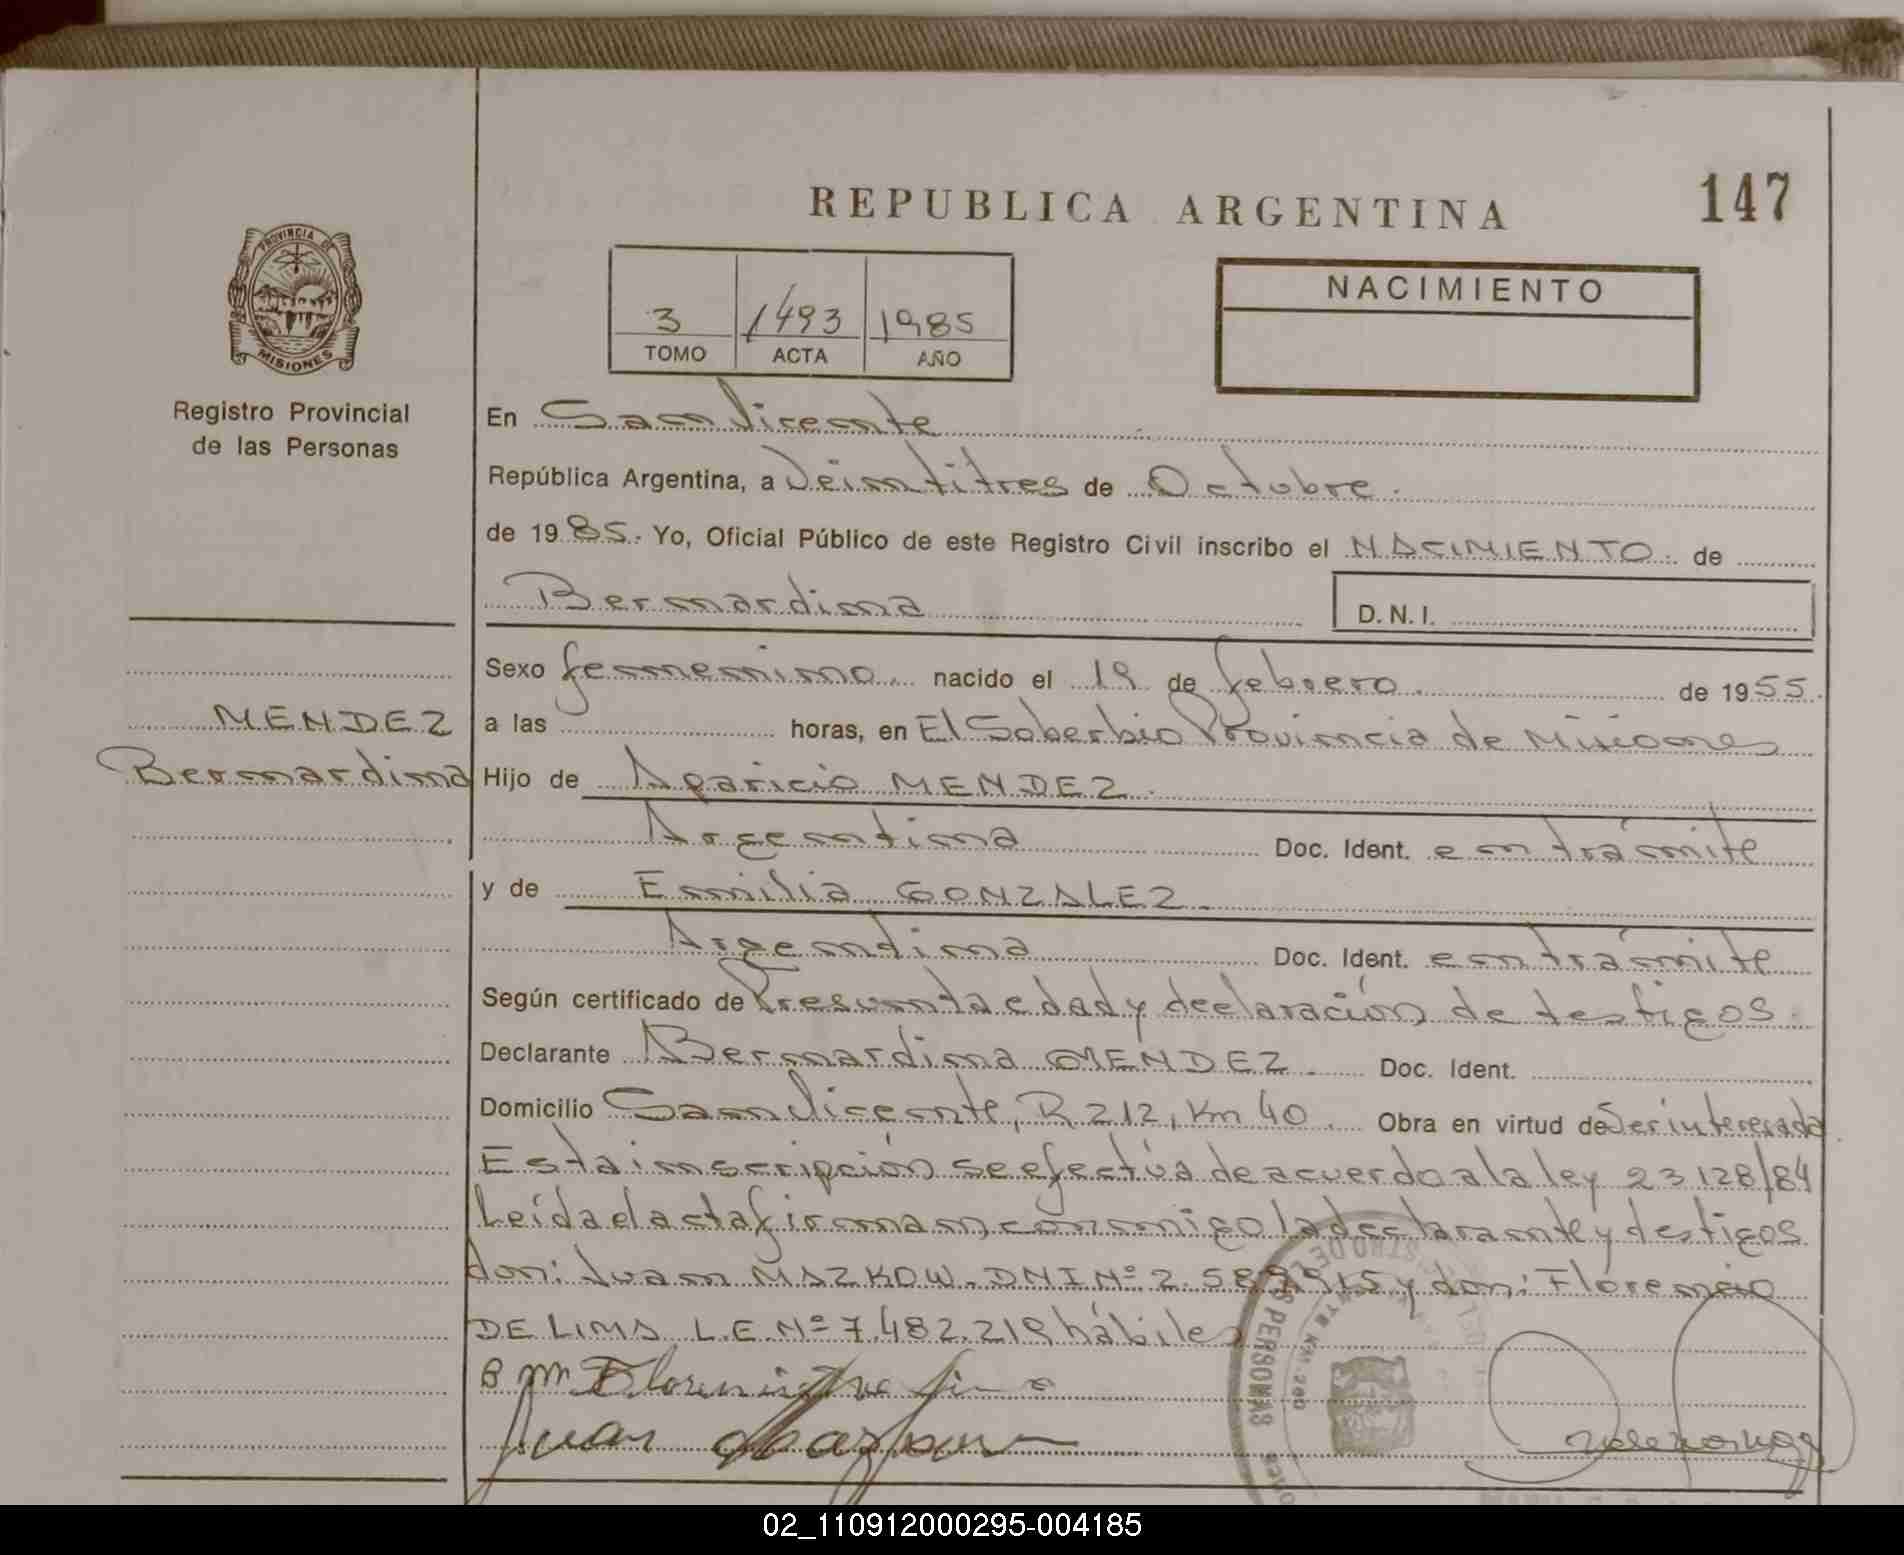 REPUBLICA ARGENTINA
147
PROVINCIA DE
MISIONES
Registro Provincial
de las Personas
3 1493 1985
TOMO ACTA AÑO
NACIMIENTO
En San Vicente
República Argentina, a Veintitres de Octubre.
de 1985. Yo, Oficial Público de este Registro Civil inscribo el NACIMIENTO. de
Bernardina
D. N. I.
Sexo femenino nacido el 19 de febrero de 1955.
MENDEZ
a las horas, en El Soberbio Provincia de Misiones
Bernardina
Hijo de Aparicio MENDEZ.
Argentina Doc. Ident. en trámite
y de Emilia GONZALEZ.
Argentina Doc. Ident. en trámite
Según certificado de Presunta edad y declaración de testigos.
Declarante Bernardina MENDEZ. Doc. Ident.
Domicilio San Vicente, R 212, Km 40. Obra en virtud de Ser interesada.
Esta inscripción se efectúa de acuerdo a la ley 23128/84
Leída el acta firman conmigo la declarante y testigos
don: Juan MAZKOW. DNI Nº 2.589.915 y don: Florencio
DE LIMA L.E. Nº 7.482.219 hábiles
B m Florencio De Lima
Juan
PERSONAS
02_110912000295-004185